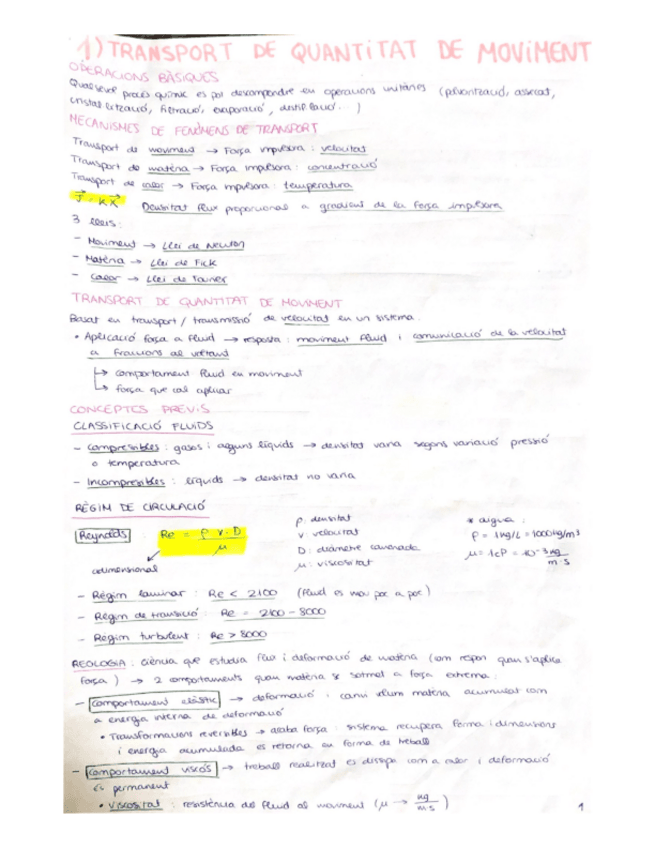 1) TRANSPORT DE QUANTITAT DE MOVIMENT
OPERACIONS BÀSIQUES
Qualsevol procés químic es pot descompondre en operacions unitàries (polvorització, assecat,
cristal·lització, filtració, evaporació, destil·lació... )
MECANISMES DE FENÒMENS DE TRANSPORT
Transport de moviment → Força impulsora : velocitat
Transport de matèria → Força impulsora : concentració
Transport de calor → Força impulsora : temperatura
J = K X Densitat flux proporcional a gradient de la força impulsora
3 lleis :
- Moviment → Llei de Newton
- Matèria → Llei de Fick
- Calor → Llei de Fourier
TRANSPORT DE QUANTITAT DE MOVIMENT
Basat en transport / transmissió de velocitat en un sistema.
• Aplicació força a fluid → resposta : moviment fluid i comunicació de la velocitat
a fraccions del voltant
↳ comportament fluid en moviment
↳ força que cal aplicar
CONCEPTES PREVIS
CLASSIFICACIÓ FLUIDS
- Compressibles : gasos i alguns líquids → densitat varia segons variació pressió
o temperatura
- Incompressibles : líquids → densitat no varia
RÈGIM DE CIRCULACIÓ
Reynolds : Re = ρ v · D / μ
adimensional
ρ : densitat
v : velocitat
D : diàmetre canonada
μ : viscositat
* aigua :
ρ = 1 kg/L = 1000 kg/m³
μ = 1 cP = 10⁻³ kg / m·s
- Règim laminar : Re < 2100 (fluid es mou poc a poc)
- Règim de transició : Re = 2100 - 8000
- Règim turbulent : Re > 8000
REOLOGIA : ciència que estudia flux i deformació de matèria (com respon quan s'aplica
força ) → 2 comportaments quan matèria se sotmet a força externa :
- comportament elàstic → deformació : canvi volum matèria acumulat com
a energia interna de deformació
• Transformacions reversibles → acaba força : sistema recupera forma i dimensions
i energia acumulada es retorna en forma de treball
- comportament viscós → treball realitzat es dissipa com a calor i deformació
és permanent
• Viscositat : resistència del fluid al moviment (μ → kg / m·s )
1